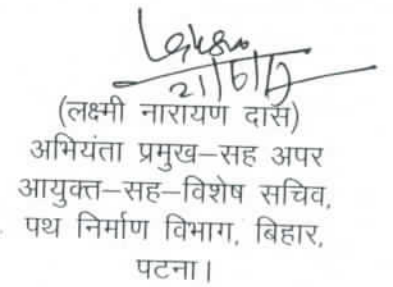 21/6/17
(लक्ष्मी नारायण दास)
अभियंता प्रमुख–सह अपर
आयुक्त–सह–विशेष सचिव,
पथ निर्माण विभाग, बिहार,
पटना।